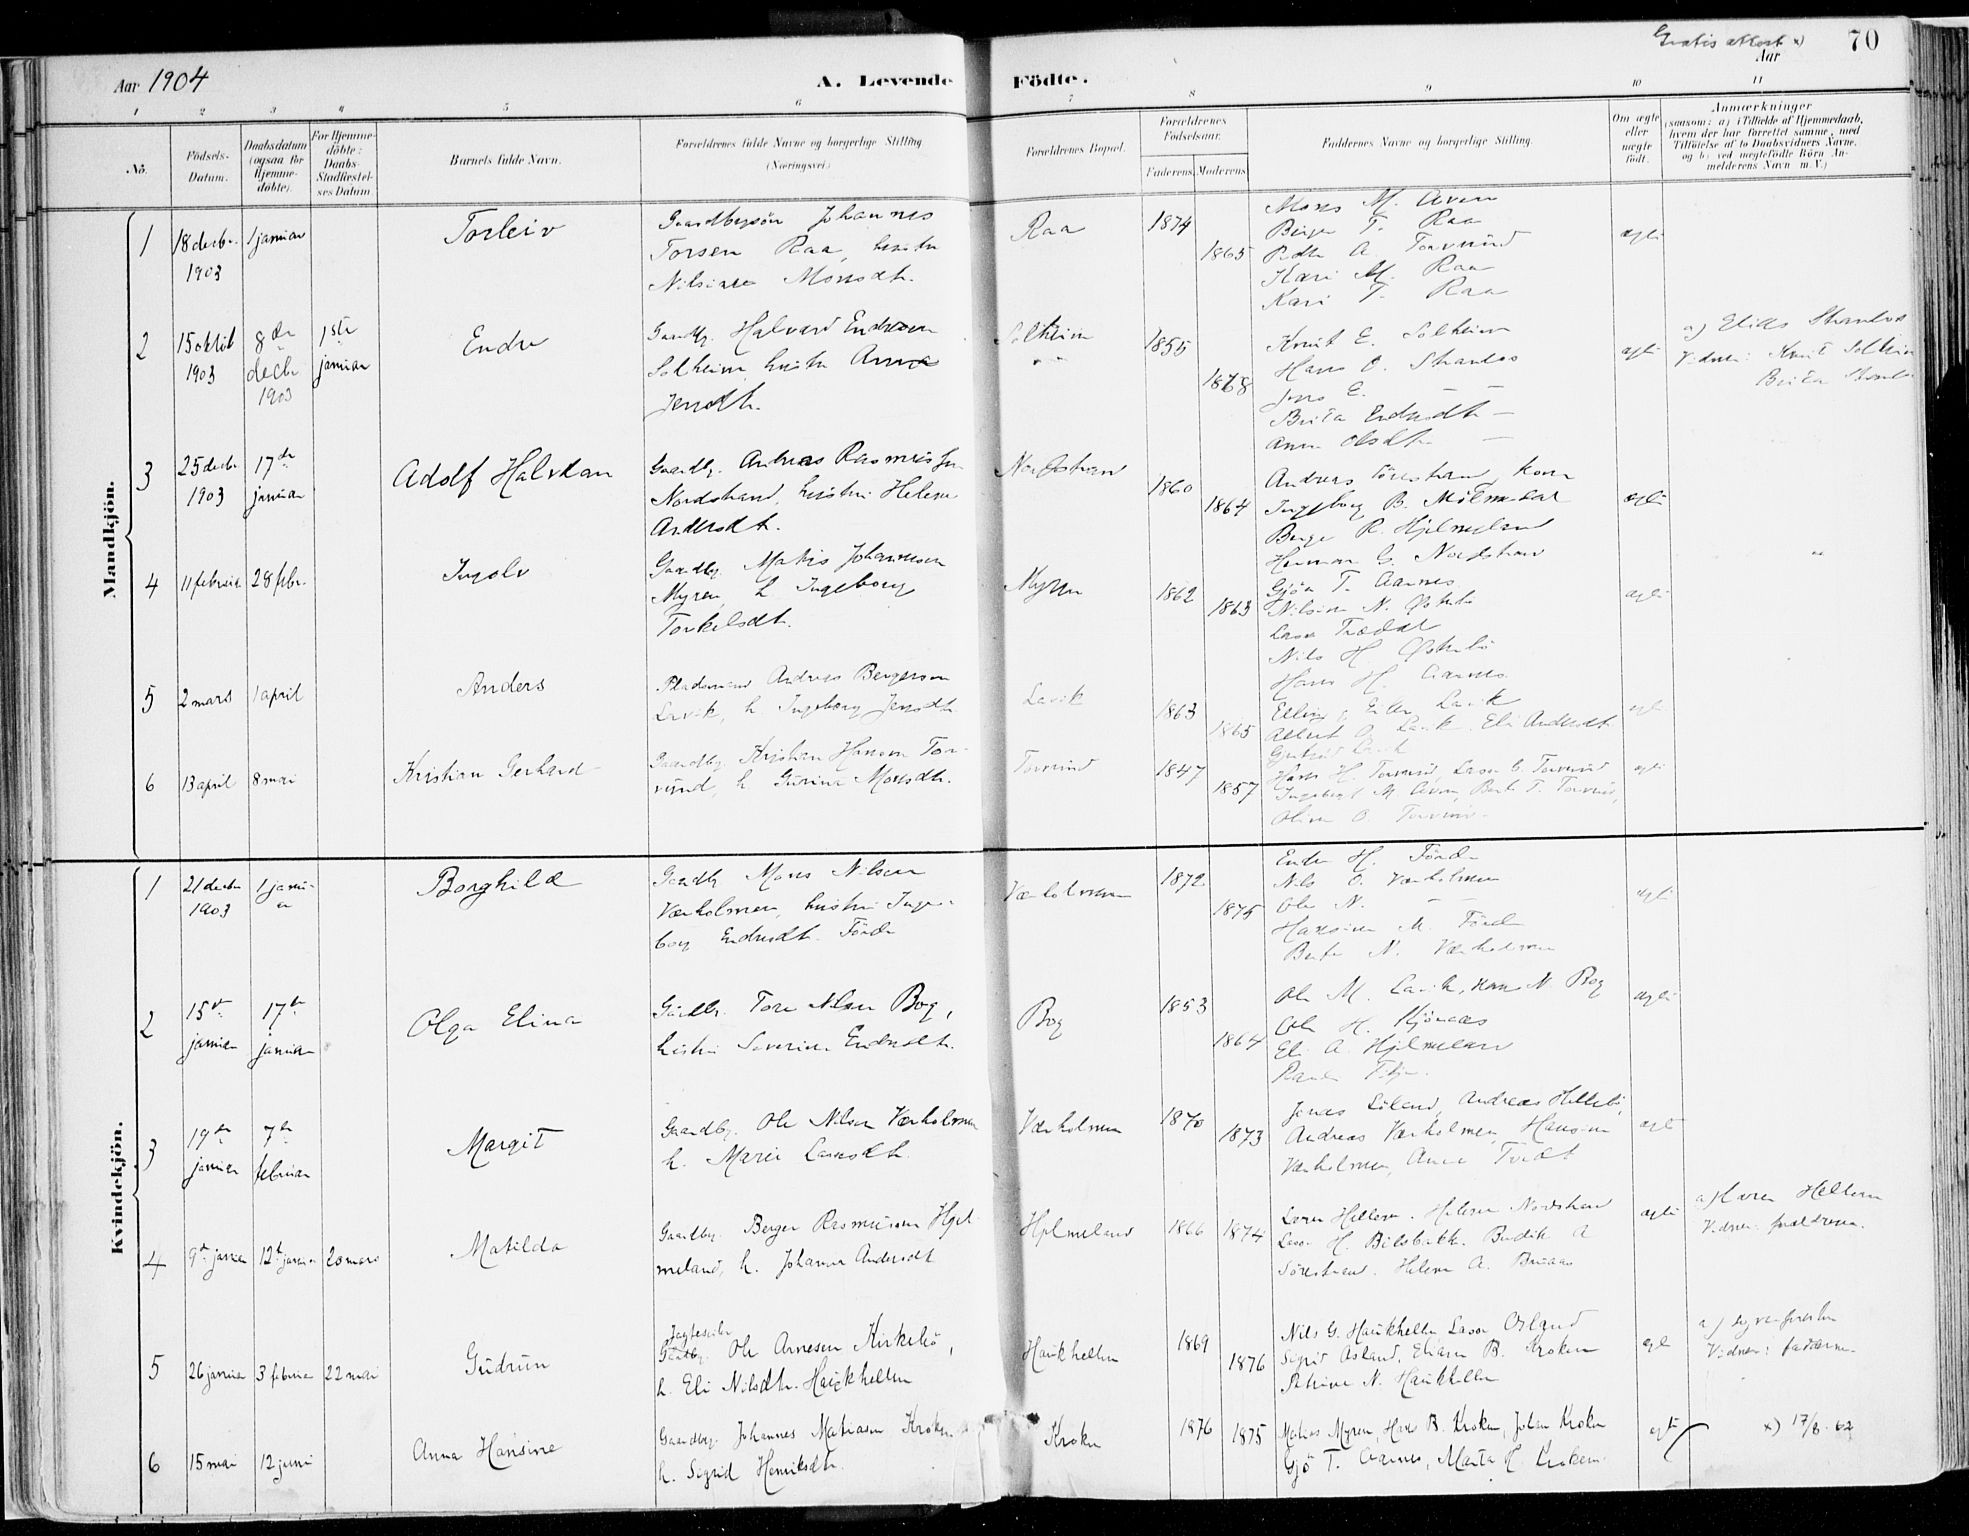 Aar 1904
A. Levende Födte.
Gratis attest x)
Aar
70
1 2 3 4 5 6 7 8 9 10 11
No.
Födsels-Datum.
Daabsdatum (ogsaa for hjemme-döbte).
For Hjemme-döbte: Daabs-Stadfæstel-ses Datum
Barnets fulde Navn.
Forældrenes fulde Navne og borgerlige Stilling (Næringsvei.)
Forældrenes Bopæl.
Forældrenes Födselsaar.
Faderens. Moderens.
Faddernes Navne og borgerlige Stilling.
Om ægte eller uægte födt.
Anmærkninger
(saasom: a) i Tilfælde af Hjemmedaab, hvem der har forrettet samme, med Tilföielse af to Daabsvidners Navne, og b) ved uægtefödte Börn An-melderens Navn m. V.)
Mandkjön.
1 18 decbr. 1903 1 januar Torleiv
Gaardbrsön Johannes
Torsen Raa, hustru
Nilsine Monsdtr.
Raa 1874 1865
Mons M. Aven
Birger T. Raa
Peder A. Torvund
Kari M. Raa
Kari T. Raa
ægte
2 15 oktob 1903 8de decbr 1903 1ste januar Endre
Gaardbr. Halvard Endresen
Solheim, hustru Anna
Jensdtr.
Solheim 1855 1868
Knut E. Solheim
Hans O. Strandos
Jens E. —
Brita Endresdtr —
Anna Olsdtr. —
ægte
a) Elias Strandos
Vidner: Knut Solheim
Brita Strandos
3 25 decbr 1903 17de januar Adolf Halvdan
Gaardbr. Andreas Rasmussen
Nordstrand, hustru Helene
Andersdtr.
Nordstrand 1860 1864
Andreas Sörestrand, kone
Ingeborg B. Mölmesdal
Berge R. Hjelmeland
Herman G. Nordstrand
ægte
4 11 februar 28 febr. Ingolv
Gaardbr. Matis Johannesen
Myren, h. Ingeborg
Torkelsdtr.
Myren 1862 1863
Gjön T. Aarnes
Nilsine N. Østrebö
Lasse Trædal
Nils H. Østrebö
Hans H. Aarnes
ægte
5 2 mars 1 april Anders
Pladsmand Andreas Bergesen
Lavik, h. Ingeborg Jensdtr
Lavik 1863 1865
Elling Lavik
Albert O. Lavik. Eli Andersdtr
Lavik
ægte
6 13 april 8 mai Kristian Gerhard
Gaardbr. Kristian Hansen Tor-
vund, h. Gurine Monsdtr.
Torvund 1847 1857
Hans H. Torvund, Lasse C. Torvund
Ingeborg M. Aven, Berte T. Torvund,
Oline O. Torvund
ægte
Kvindekjön.
1 21 decbr 1903 1 januar Borghild
Gaardbr Mons Nilsen
Værholmen, hustru Inge-
borg Endresdtr. Förde
Værholmen 1872 1875
Endre H. Förde
Nils O. Værholmen
Ole N. — —
Hansine M. Förde
Berte N. Værholmen
ægte
2 15de januar 17de januar Olga Elina
Gardbr. Tore Nilsen Bog,
hustru Severine Endresdtr.
Bog 1853 1864
Ole M. Lavik, Hans N. Bog
Ole H. Kjönaas
Eli A. Hjelmeland
ægte
3 19de januar 7de februar Margit
Gaardbr. Ole Nilsen Værholmen
h. Marie Lassesdtr.
Værholmen 1870 1873
Jonas Söland, Andreas Hellebö,
Andreas Værholmen, Hansine
Værholmen, Anne Tvedt
ægte
4 9de januar 12te januar 20 mars Matilda
Gaardbr. Berger Rasmussen Hjel-
meland, h. Johanne Andersdtr
Hjelmeland 1866 1874
Laven Helleren. Helene Nordstrand
Lasse H. Bilsbakk. Bendik A
Sörestrand. Helene A. Bruaas
ægte
a) Laren Helleren
Vidner: forældrene.
5 26 januar 3 februar 22 mai Gudrun
Jagteskip
Gardbr. Ole Arnesen Kirkebö,
h. Eli Nilsdtr. Haukhellen
Haukhellen 1869 1876
Nils G. Haukhellen, Lasse Osland
Sigrid Osland, Eliasen B. Kroken
Petrine N. Haukhellen
ægte
a) sogneprest
Vidner: fadderne
6 15 mai 12 juni Anna Hansine
Gaardbr. Johannes Matiasen Kroken
h. Sigrid Henriksdtr.
Kroken 1876 1875
Matias Myren, Hans B. Kroken, Johan Kroken
Gjö T. Aarnes, Marta H. Kroken.
ægte
x) 17/8